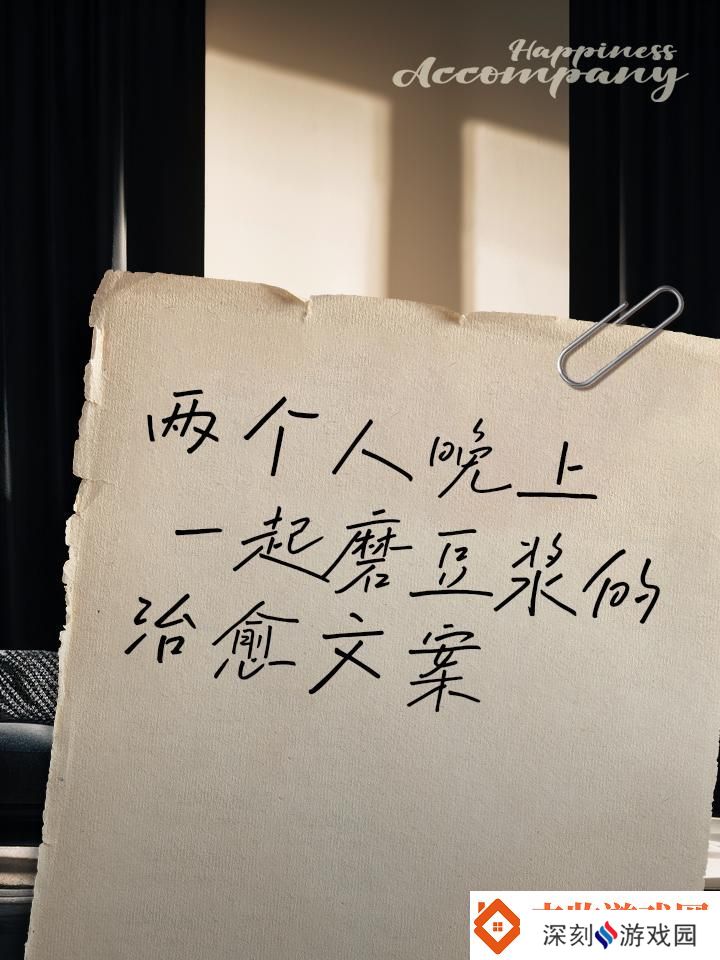 Happiness
Accompany
两个人晚上
一起磨豆浆的
治愈文案
深刻游戏园